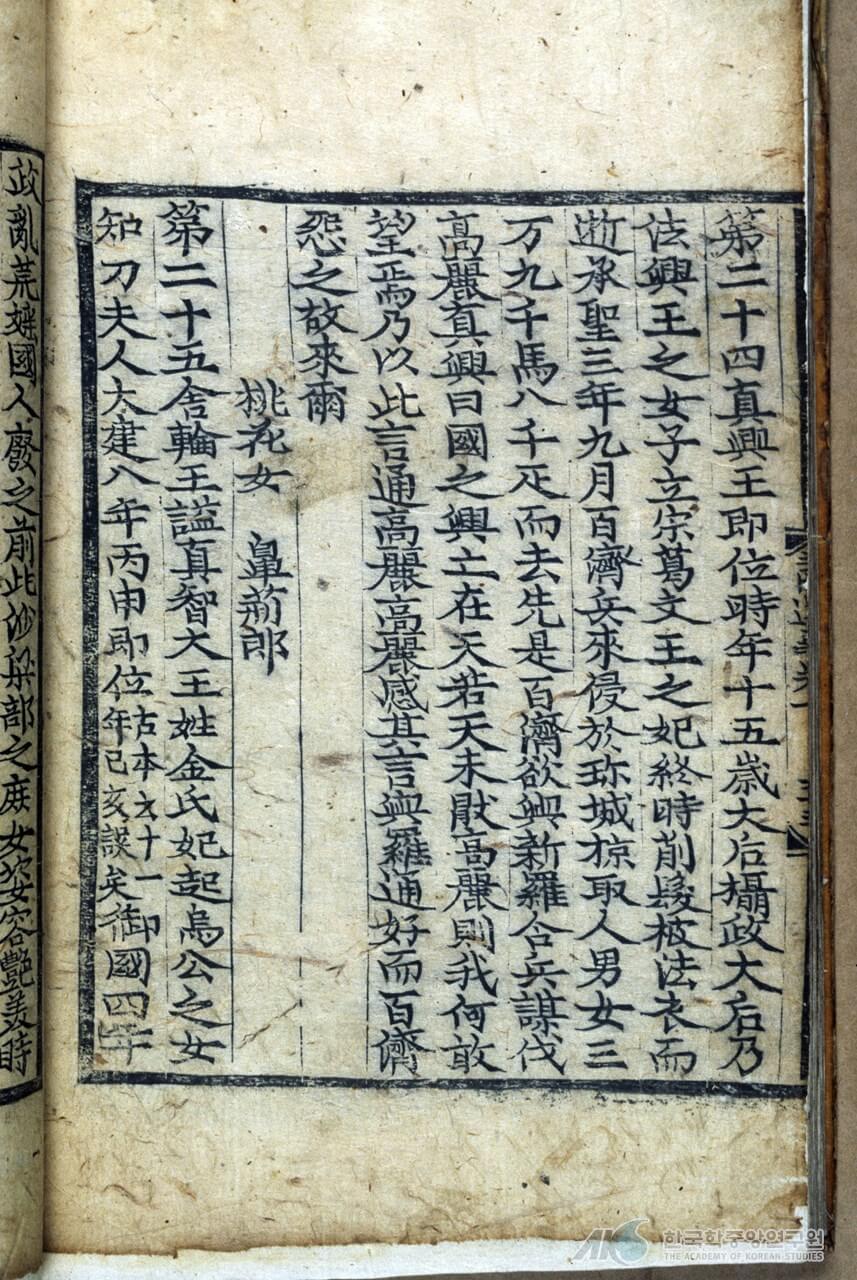 第二十四真興王即位時年十五歲大后攝政大后乃
法興王之女子立宗葛文王之妃終時削髮被法衣而
逝承聖三年九月百濟兵來侵於珎城掠取人男女三
万九千馬八千疋而去先是百濟欲與新羅合兵謀伐
高麗真興曰國之興亡在天若天未猒高麗則我何敢
望焉乃以此言通高麗高麗感其言與羅通好而百濟
怨之故來爾
桃花女 鼻荊郎
第二十五舍輪王謚真智大王姓金氏妃起烏公之女
知刀夫人大建八年丙申即位古本云十一年己亥誤矣御國四年
政亂荒婬國人廢之前此沙梁部之庶女姿容艶美時
한국학중앙연구원
THE ACADEMY OF KOREAN STUDIES